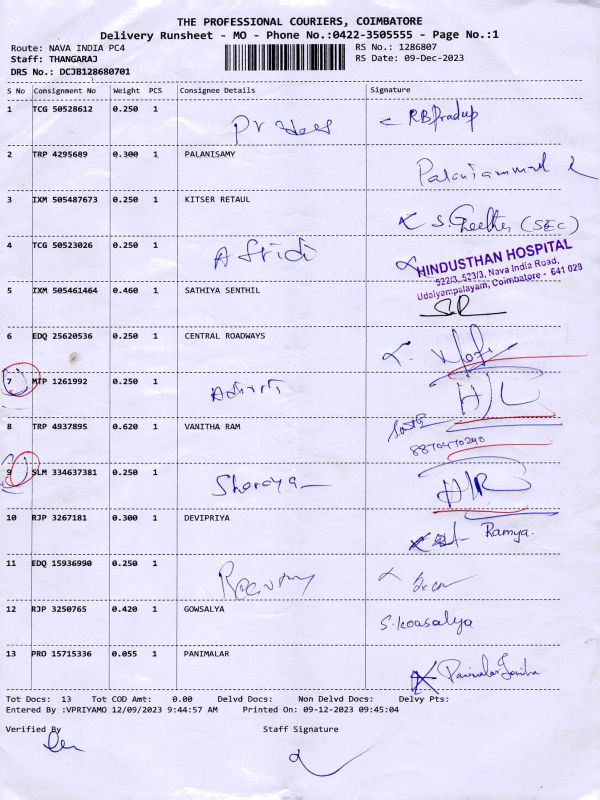 THE PROFESSIONAL COURIERS, COIMBATORE
Delivery Runsheet - MO - Phone No.:0422-3505555 - Page No.:1
Route: NAVA INDIA PC4 RS No.: 1286807
Staff: THANGARAJ RS Date: 09-Dec-2023
DRS No.: DCJB128680701
S No Consignment No Weight PCS Consignee Details Signature
1 TCG 50528612 0.250 1 RBPradup
2 TRP 4295689 0.300 1 PALANISAMY
Palaniammal
3 IXM 505487673 0.250 1 KITSER RETAUL
S. Geetha (SEC)
4 TCG 50523026 0.250 1 Afridi
HINDUSTHAN HOSPITAL
522/3, 523/3, Nava India Road,
Udaiyampalayam, Coimbatore - 641 028
5 IXM 505461464 0.460 1 SATHIYA SENTHIL
6 EDQ 25620536 0.250 1 CENTRAL ROADWAYS
7 MTP 1261992 0.250 1
8 TRP 4937895 0.620 1 VANITHA RAM
8870470240
9 SLM 334637381 0.250 1 Sharaya
10 RJP 3267181 0.300 1 DEVIPRIYA
Ramya.
11 EDQ 15936990 0.250 1
12 RJP 3250765 0.420 1 GOWSALYA
S. Koasalya
13 PRO 15715336 0.055 1 PANIMALAR
Panimalar
Tot Docs: 13 Tot COD Amt: 0.00 Delvd Docs: Non Delvd Docs: Delvy Pts:
Entered By :VPRIYAMO 12/09/2023 9:44:57 AM Printed On: 09-12-2023 09:45:04
Verified By Staff Signature